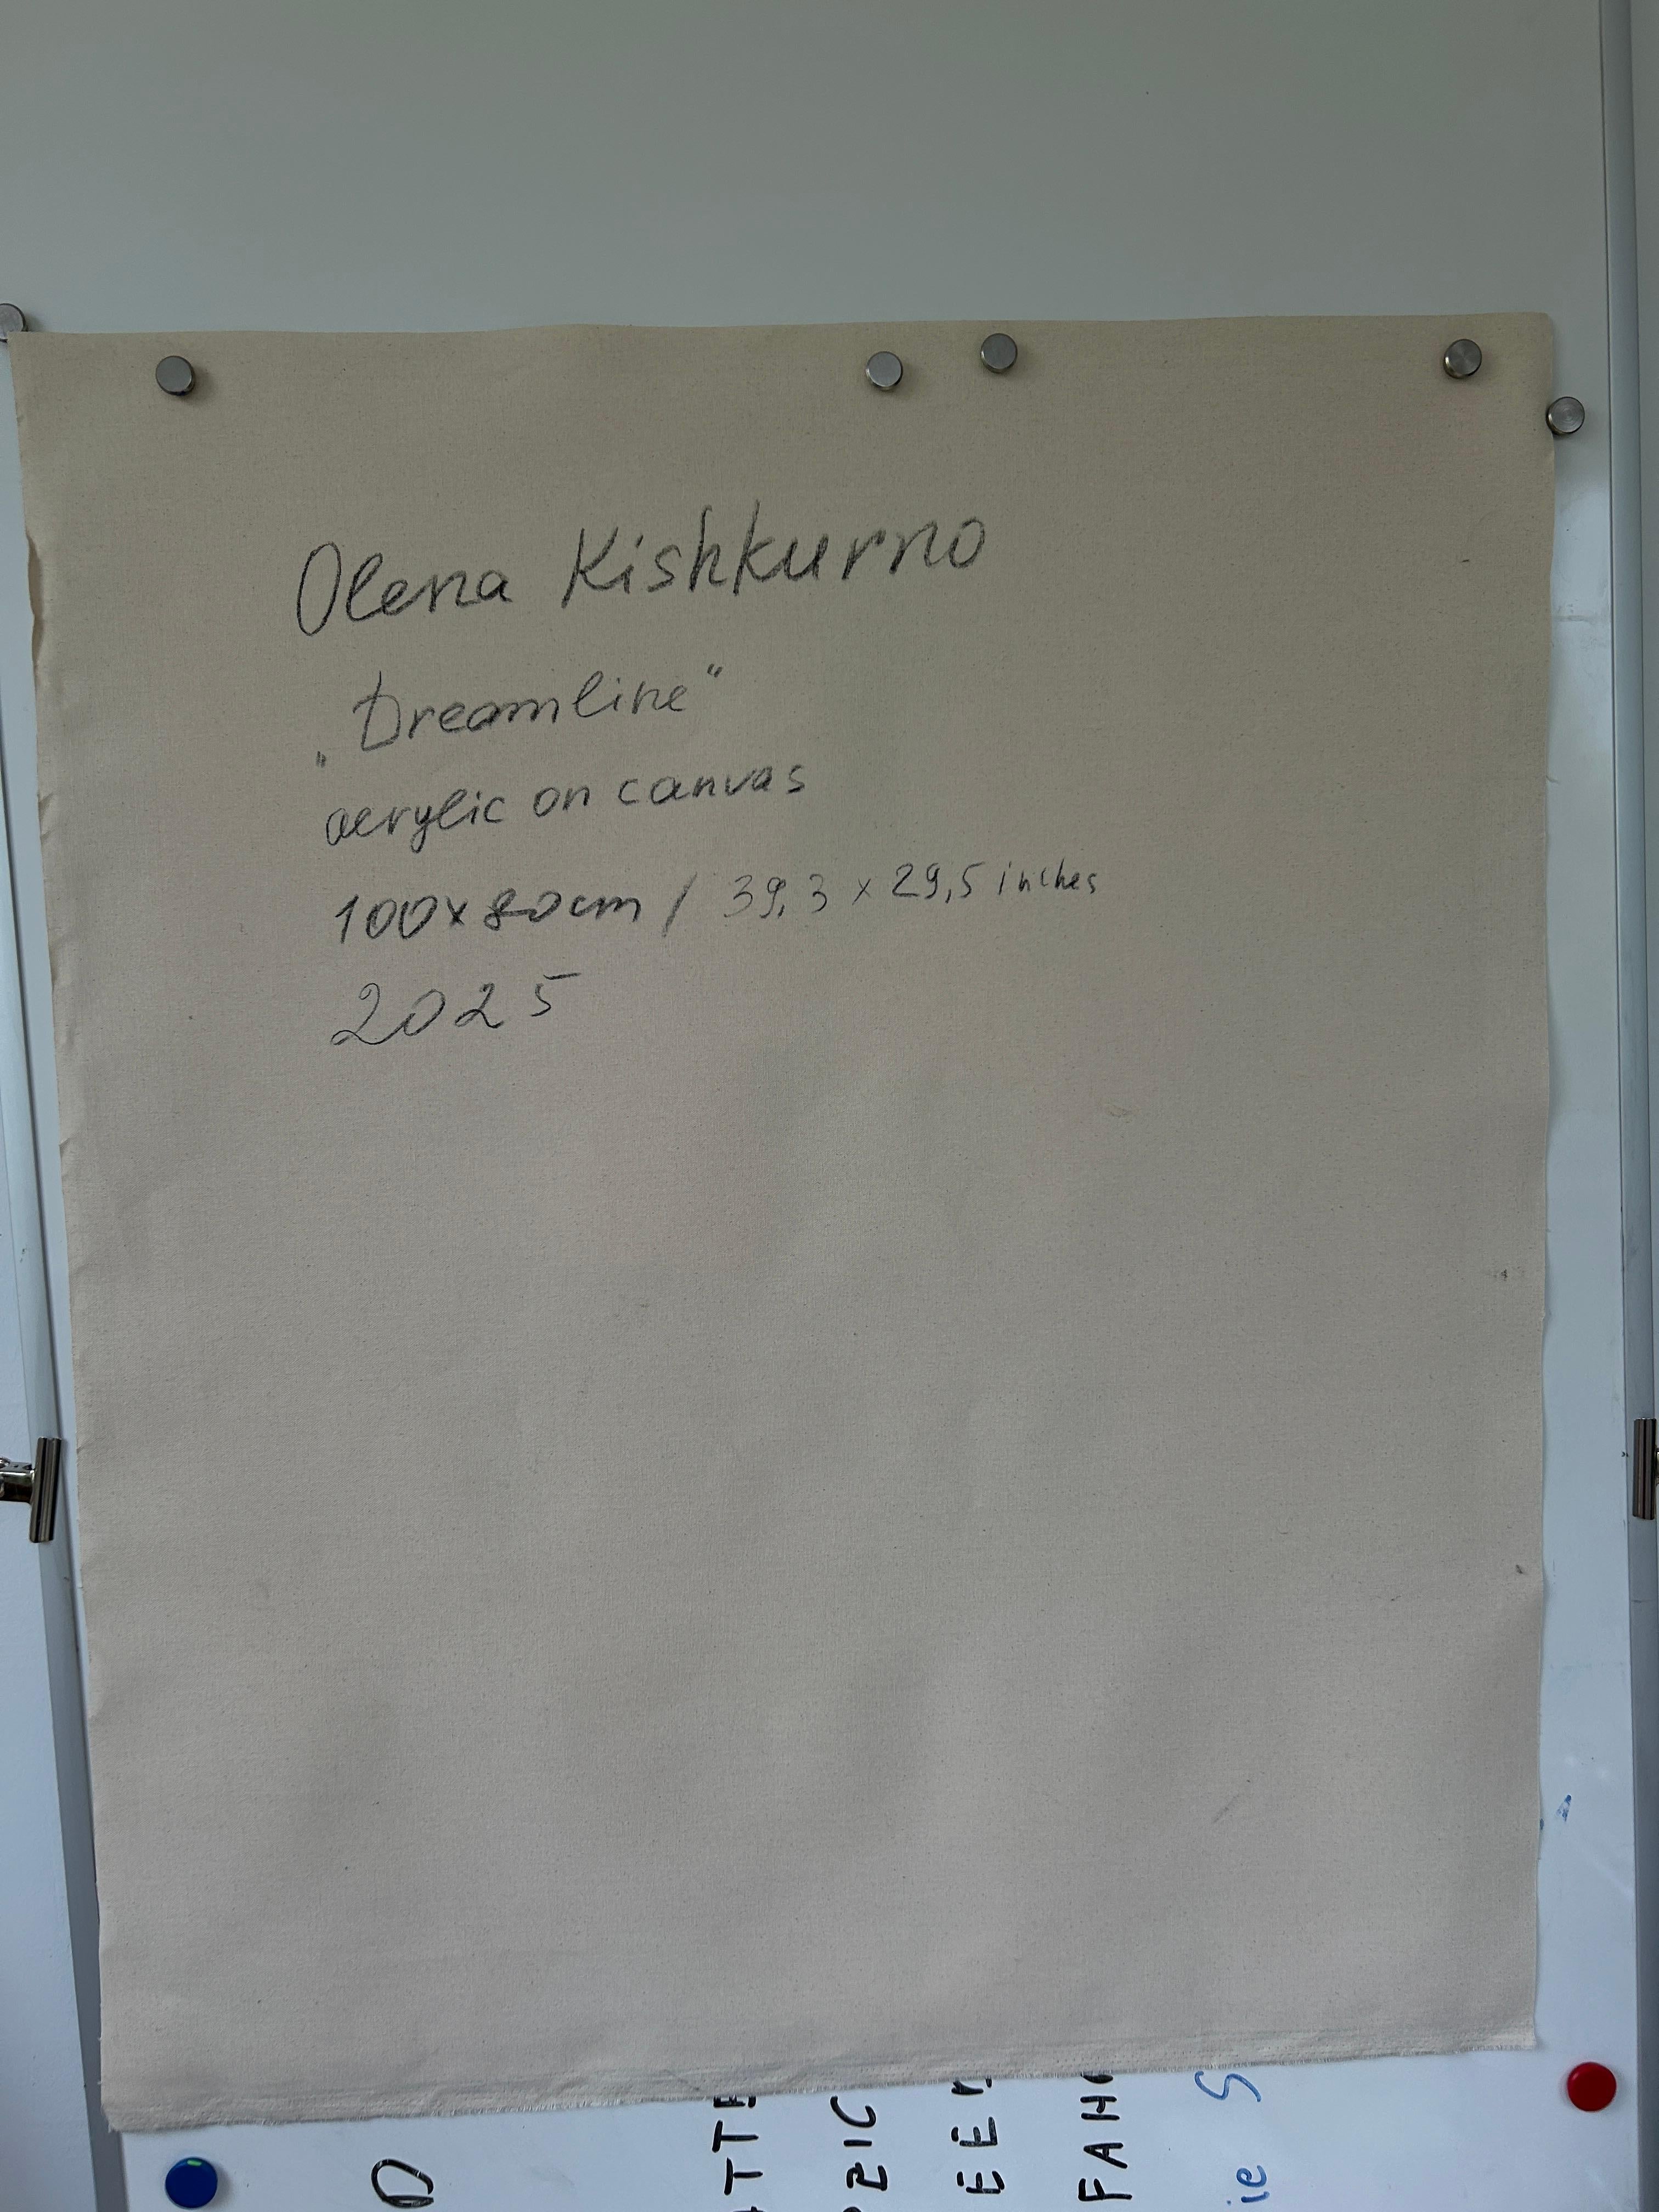 Olena Kishkurno
„Dreamline“
acrylic on canvas
100x80cm / 39,3 x 29,5 inches
2025